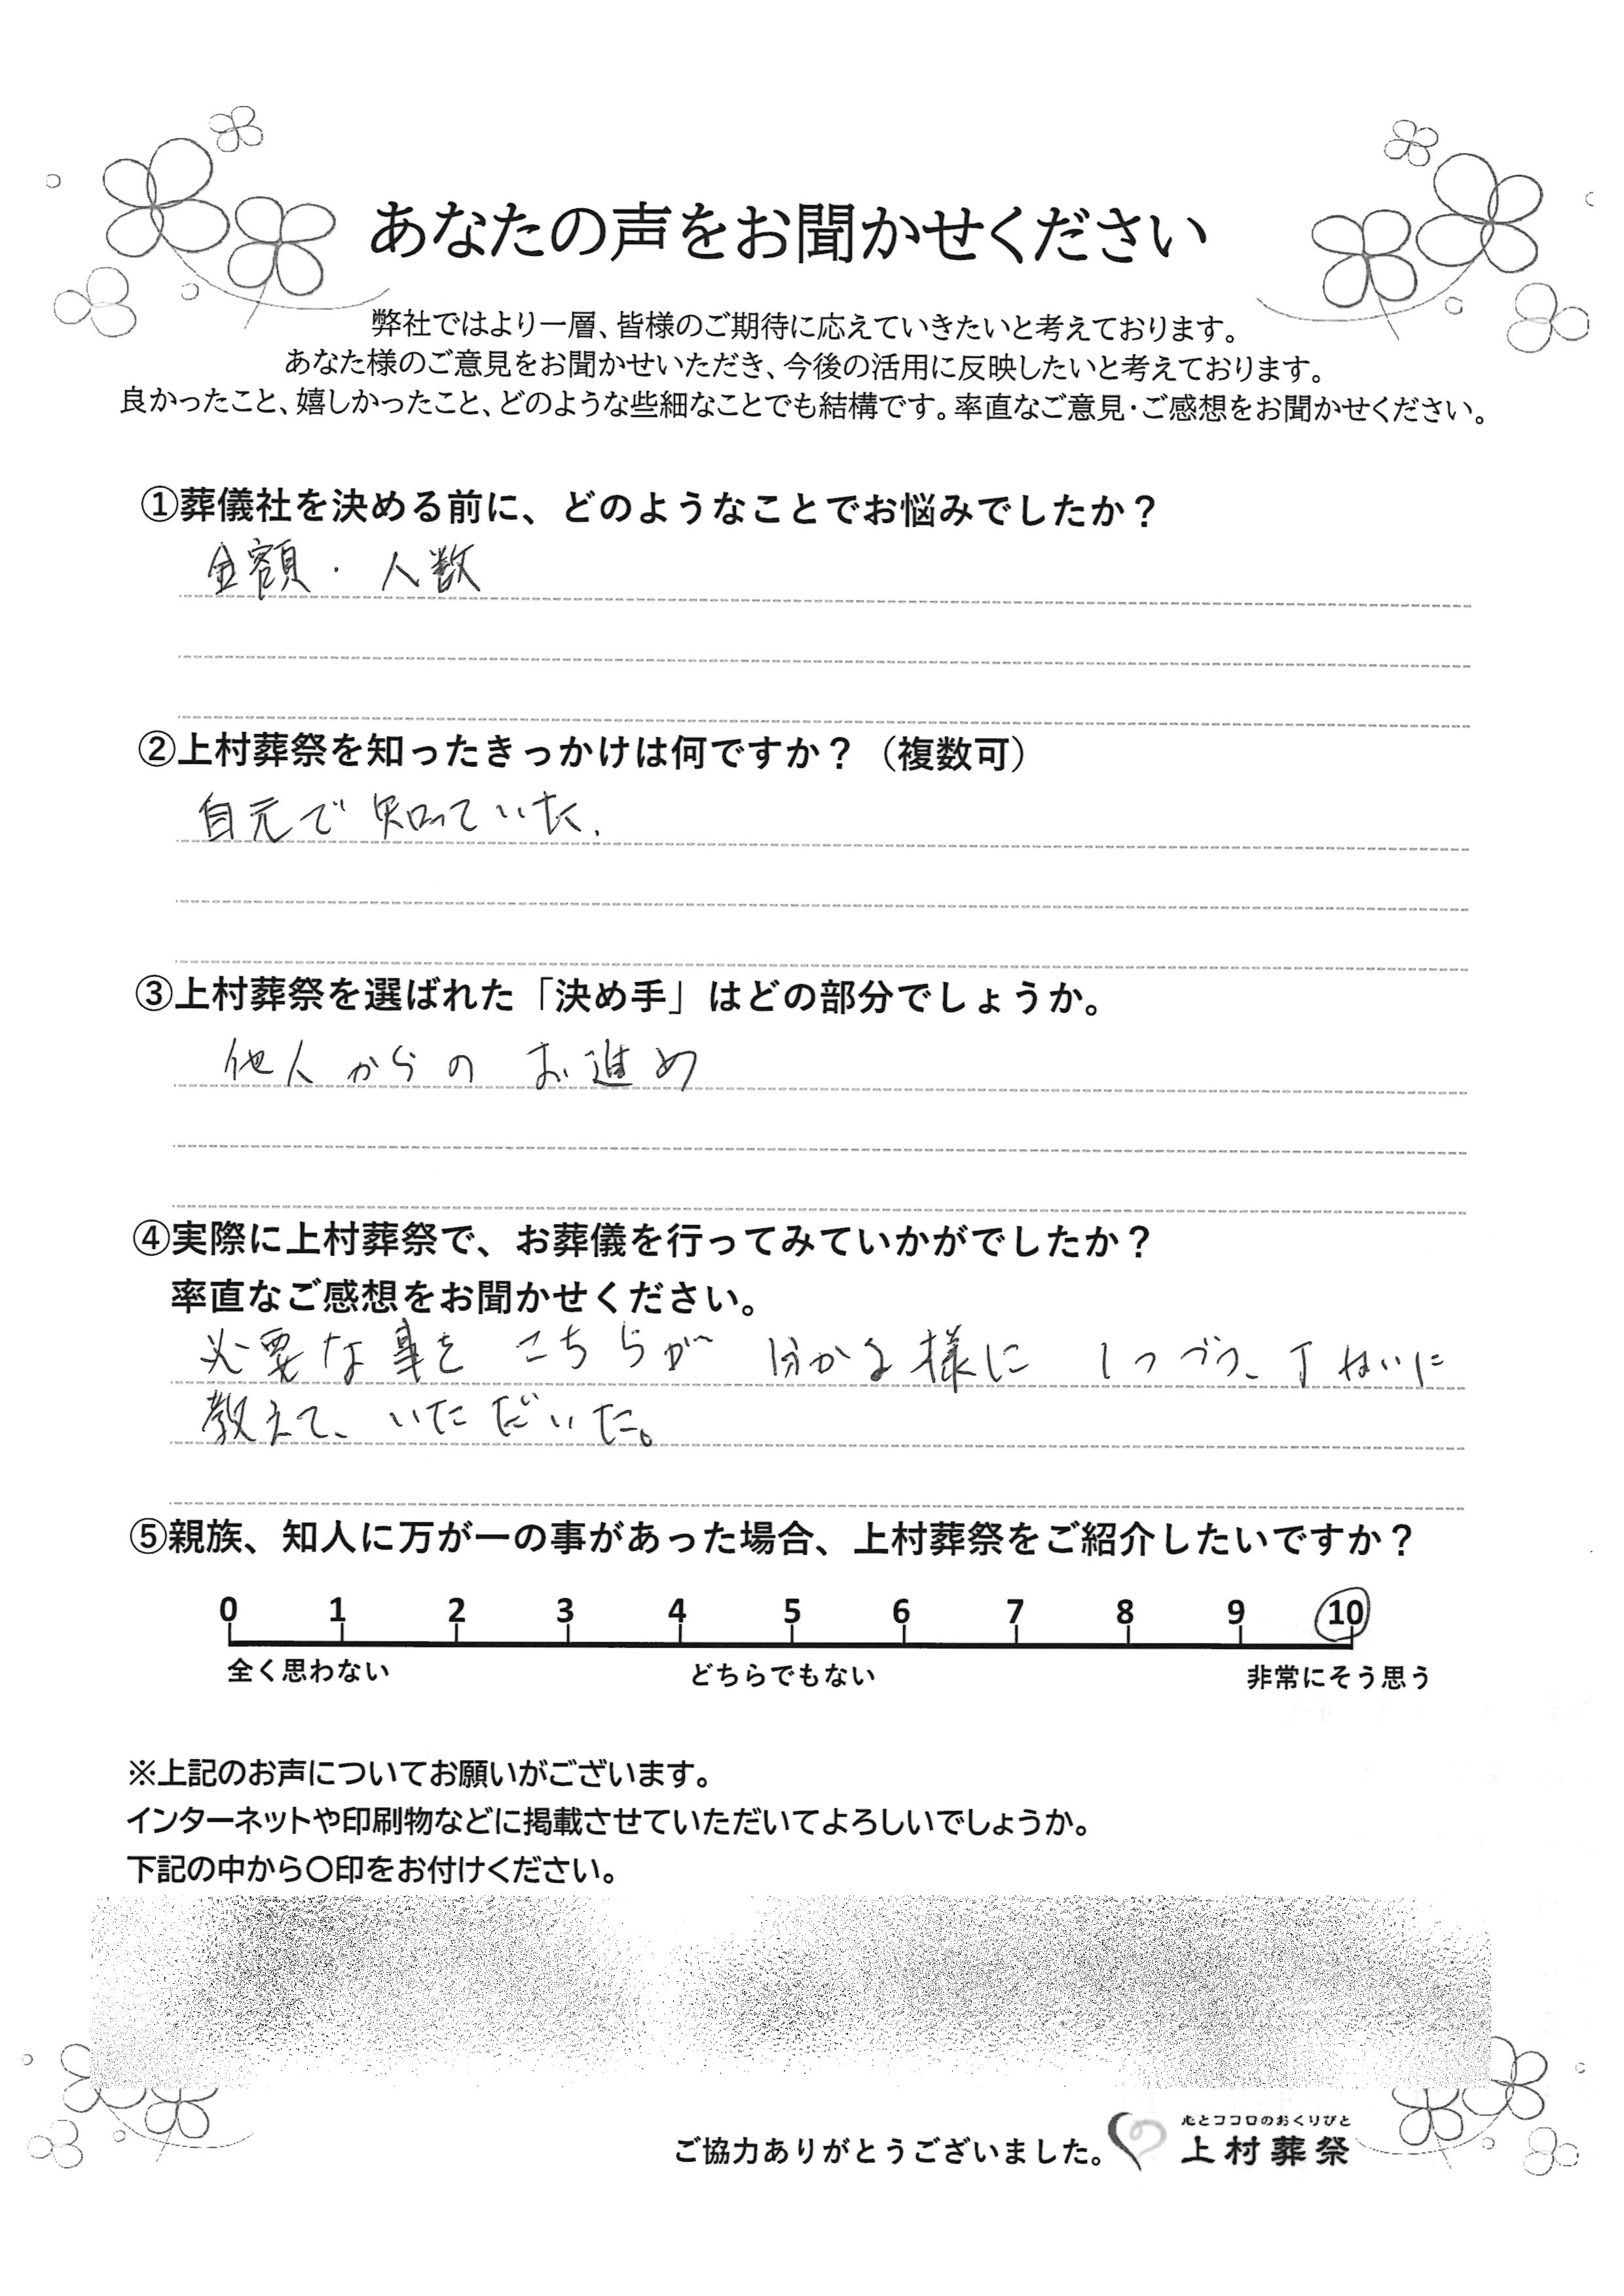 あなたの声をお聞かせください
弊社ではより一層、皆様のご期待に応えていきたいと考えております。
あなた様のご意見をお聞かせいただき、今後の活用に反映したいと考えております。
良かったこと、嬉しかったこと、どのような些細なことでも結構です。率直なご意見・ご感想をお聞かせください。
①葬儀社を決める前に、どのようなことでお悩みでしたか？
金額・人数
②上村葬祭を知ったきっかけは何ですか？（複数可）
自元で知っていた.
③上村葬祭を選ばれた「決め手」はどの部分でしょうか。
他人からの お進め
④実際に上村葬祭で、お葬儀を行ってみていかがでしたか？
率直なご感想をお聞かせください。
必要な事を こちらが 分かる様に 1つづつ、丁ねいに
教えて、いただいた。
⑤親族、知人に万が一の事があった場合、上村葬祭をご紹介したいですか？
0 1 2 3 4 5 6 7 8 9 10
全く思わない どちらでもない 非常にそう思う
※上記のお声についてお願いがございます。
インターネットや印刷物などに掲載させていただいてよろしいでしょうか。
下記の中から〇印をお付けください。
心とココロのおくりびと
ご協力ありがとうございました。 上村葬祭